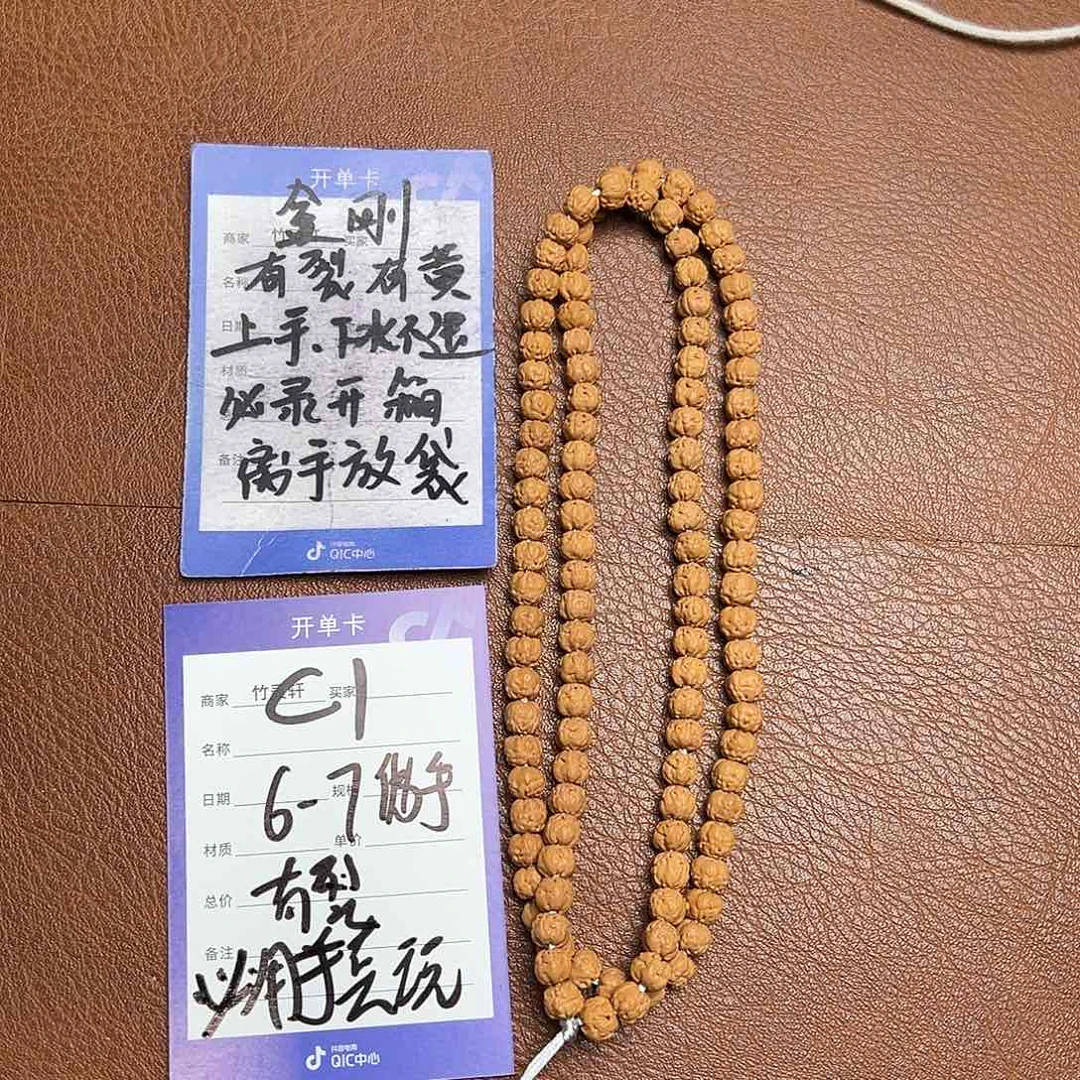 开单卡
金刚
商家 竹 买家
名称
有裂有黄
日期
上手、下水不退
材质
必录开箱
备注
离手放袋
抖音电商
QIC中心
开单卡
C1
商家 竹 轩 买家
名称
日期 规格
6-7
材质 单价
总价
有裂
备注
必用手去玩
抖音电商
QIC中心